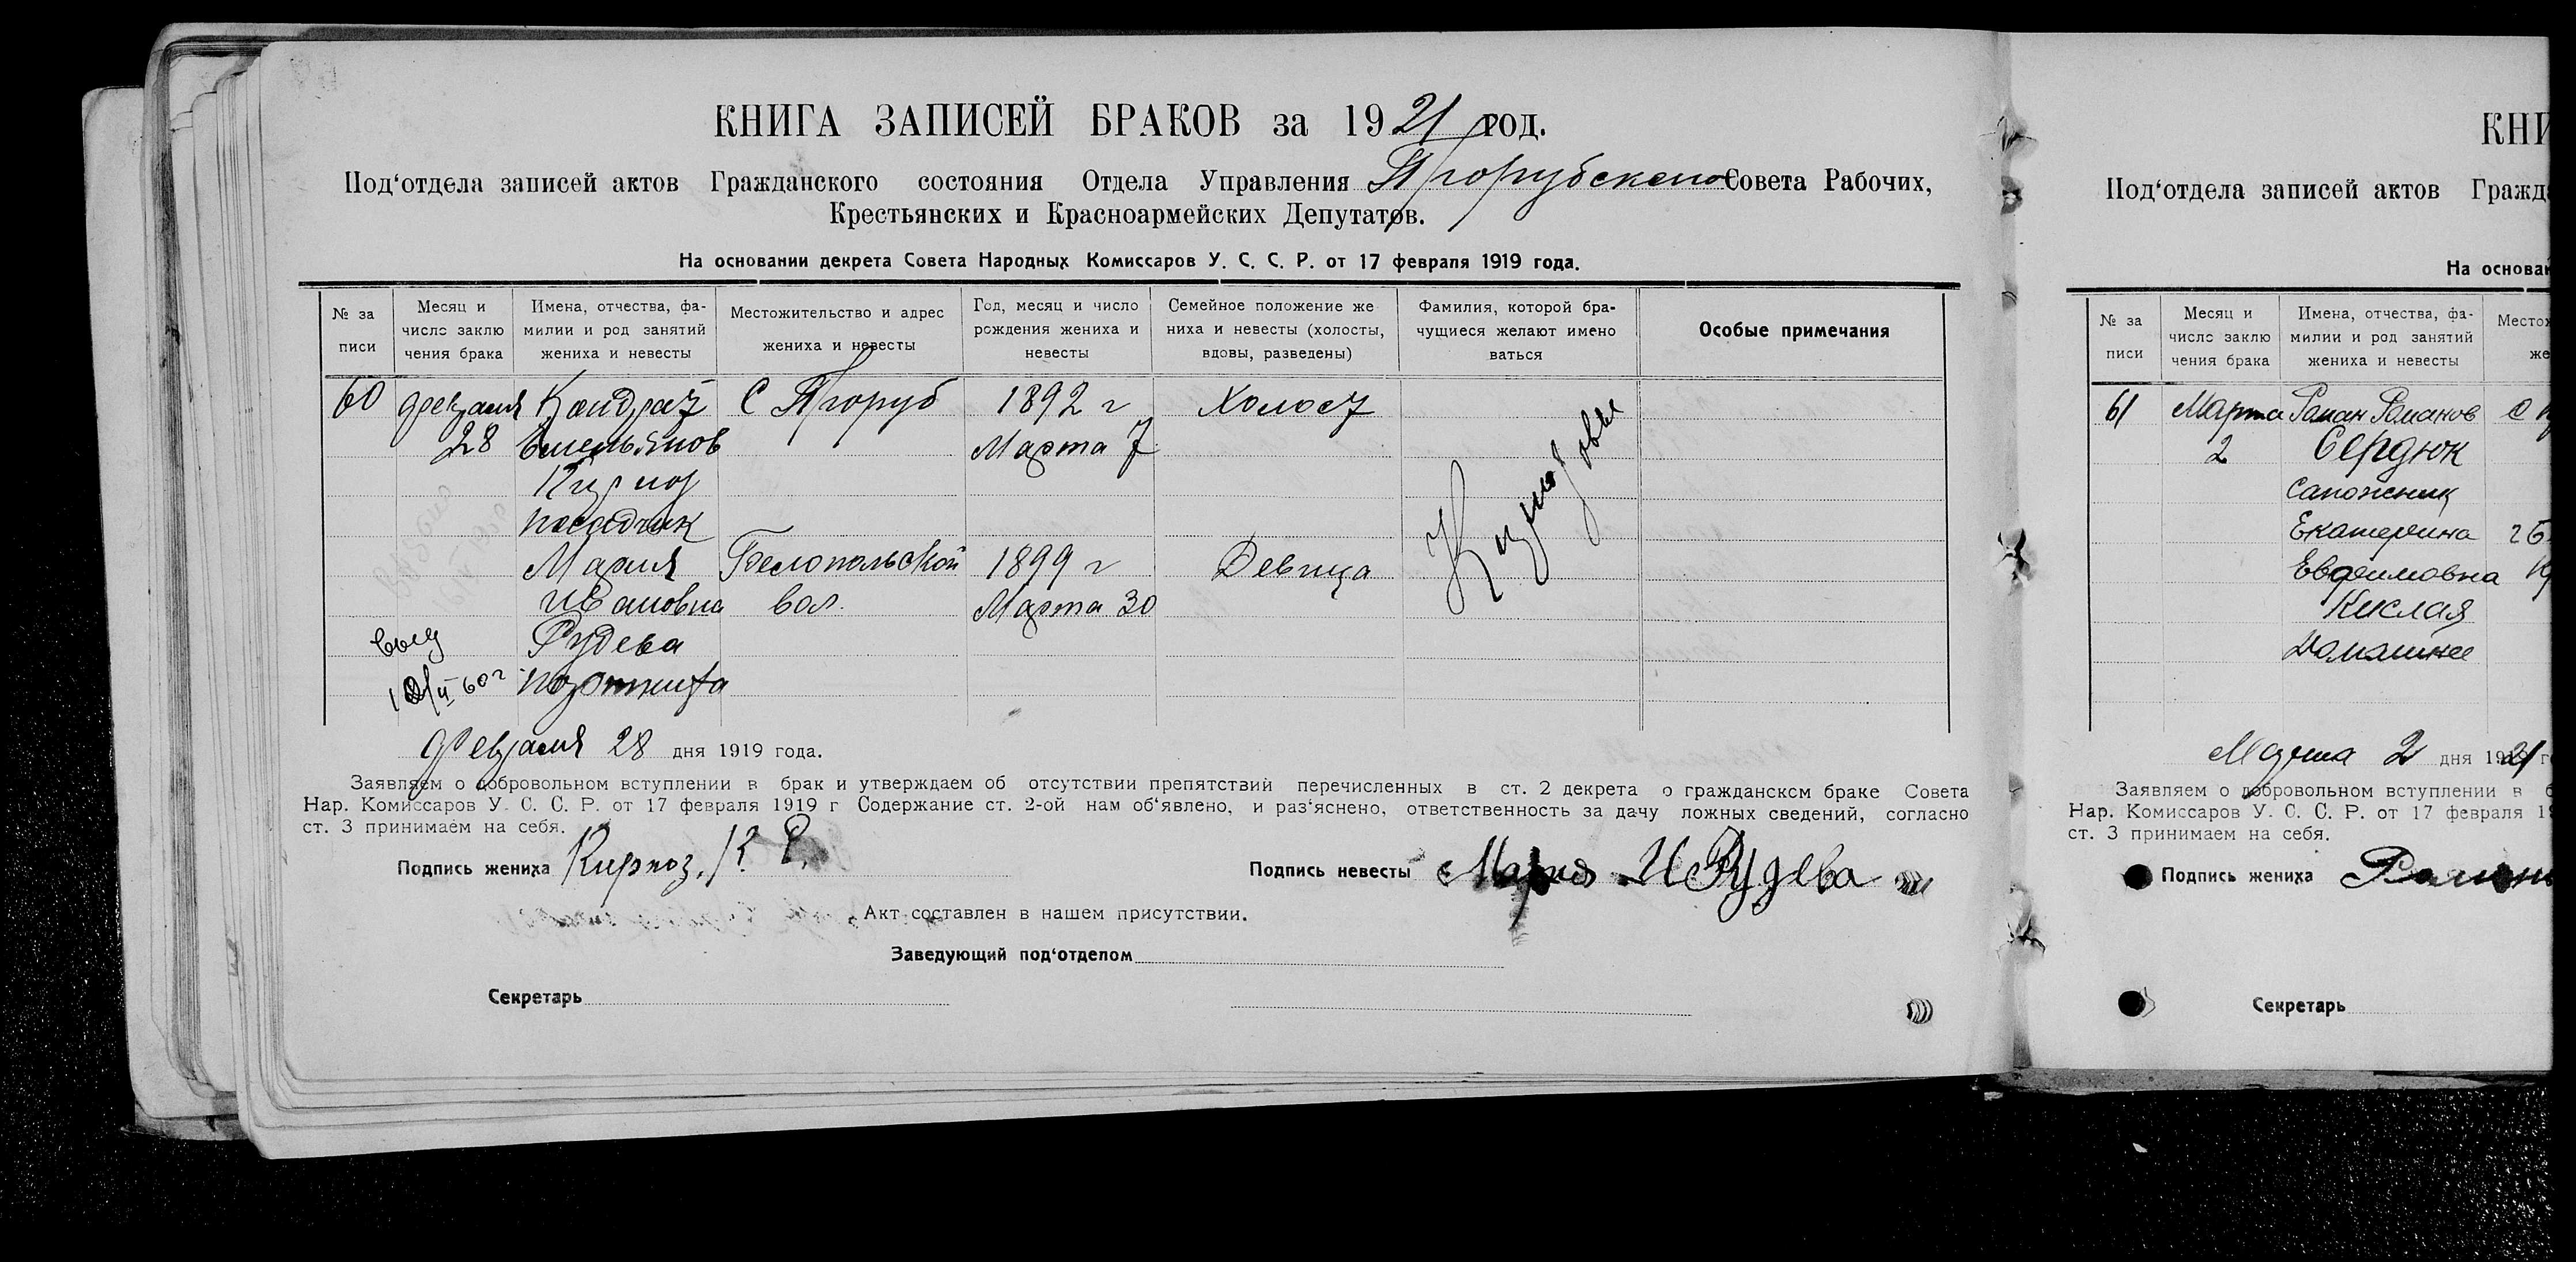 КНИГА ЗАПИСЕЙ БРАКОВ за 1921 год.
Под‘отдела записей актов Гражданского состояния Отдела Управления Прорубского Совета Рабочих,
Крестьянских и Красноармейских Депутатов.
На основании декрета Совета Народных Комиссаров У. С. С. Р. от 17 февраля 1919 года.
№ за писи
Месяц и число заклю чения брака
Имена, отчества, фа- милии и род занятий жениха и невесты
Местожительство и адрес жениха и невесты
Год, месяц и число рождения жениха и невесты
Семейное положение же ниха и невесты (холосты, вдовы, разведены)
Фамилия, которой бра- чущиеся желают имено ваться
Особые примечания
60 февраля Кондрат С Проруб 1892 г Холост
28 Емельянов Марта 7
Кирноз
посадчик
Мария Белопольской 1899 г Девица
Ивановна вол. Марта 30
Рудева
Кирнозовы
Февраля 28 дня 1919 года.
Заявляем о добровольном вступлении в брак и утверждаем об отсутствии препятствий перечисленных в ст. 2 декрета о гражданском браке Совета
Нар. Комиссаров У. С. С. Р. от 17 февраля 1919 г Содержание ст. 2-ой нам об‘явлено, и раз‘яснено, ответственность за дачу ложных сведений, согласно
ст. 3 принимаем на себя.
Подпись жениха Кирноз. К. Е. Подпись невесты Мария И Рудева
Акт составлен в нашем присутствии.
Заведующий под‘отделом
Секретарь
КНИ
Под‘отдела записей актов Гражда
На основан
№ за писи
Месяц и число заклю чения брака
Имена, отчества, фа- милии и род занятий жениха и невесты
Местож же
61 Марта Роман Романов с
2 Сердюк
Сапожник
Екатерина г Б
Евфимовна
Кислая
Домашнее
Марта 2 дня 1921 г
Заявляем о добровольном вступлении в б
Нар. Комиссаров У. С. С. Р. от 17 февраля 19
ст. 3 принимаем на себя.
Подпись жениха Роман
Секретарь